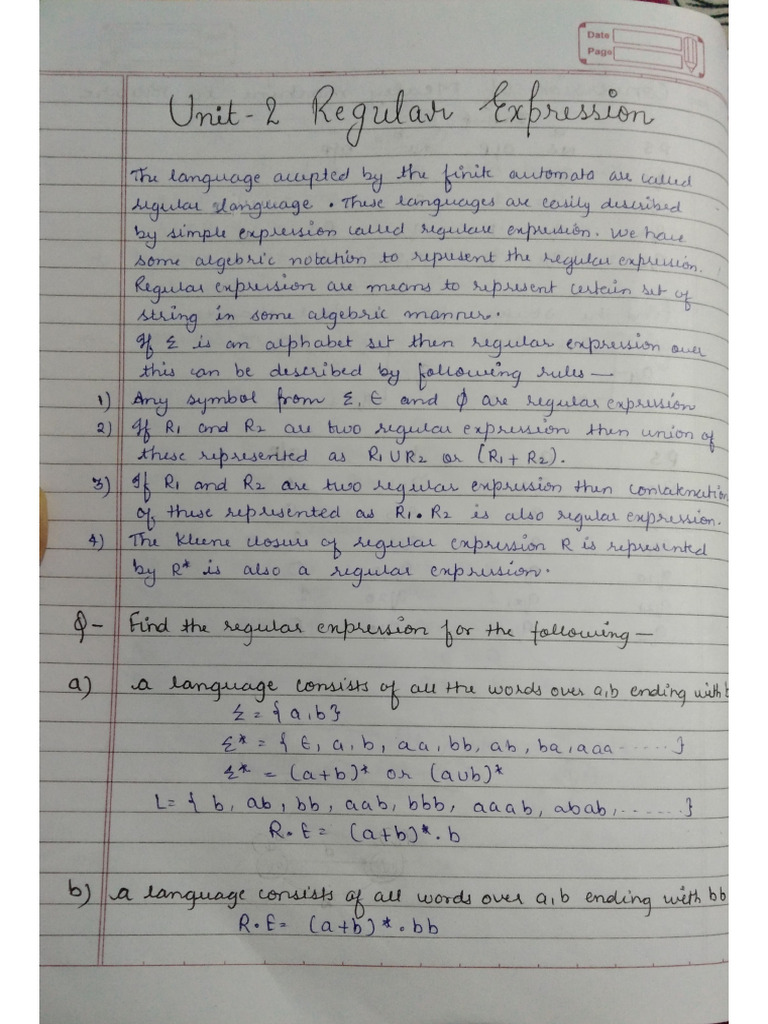 Date
Page
Unit-2 Regular Expression
The language accepted by the finite automata are called
regular language. These languages are easily described
by simple expression called regulare expression. we have
some algebric notation to represent the regular expression.
Regular expression are means to represent certain set of
string in some algebric manner.
If Σ is an alphabet set then regular expression over
this can be described by following rules—
1) Any symbol from Σ, ϵ and ϕ are regular expression
2) If R1 and R2 are two regular expression then union of
these represented as R1 ∪ R2 or (R1 + R2).
3) If R1 and R2 are two regular expression then contaknation
of these represented as R1 • R2 is also regular expression.
4) The kleene closure of regular expression R is represented
by R* is also a regular expression.
Q- Find the regular expression for the following—
a) a language consists of all the words over a,b ending with b
Σ = {a,b}
Σ* = { ϵ, a, b, aa, bb, ab, ba, aaa ......}
Σ* = (a+b)* or (a∪b)*
L = { b, ab, bb, aab, bbb, aaab, abab, ......}
R.E = (a+b)*.b
b) a language consists of all words over a,b ending with bb
R.E = (a+b)*.bb